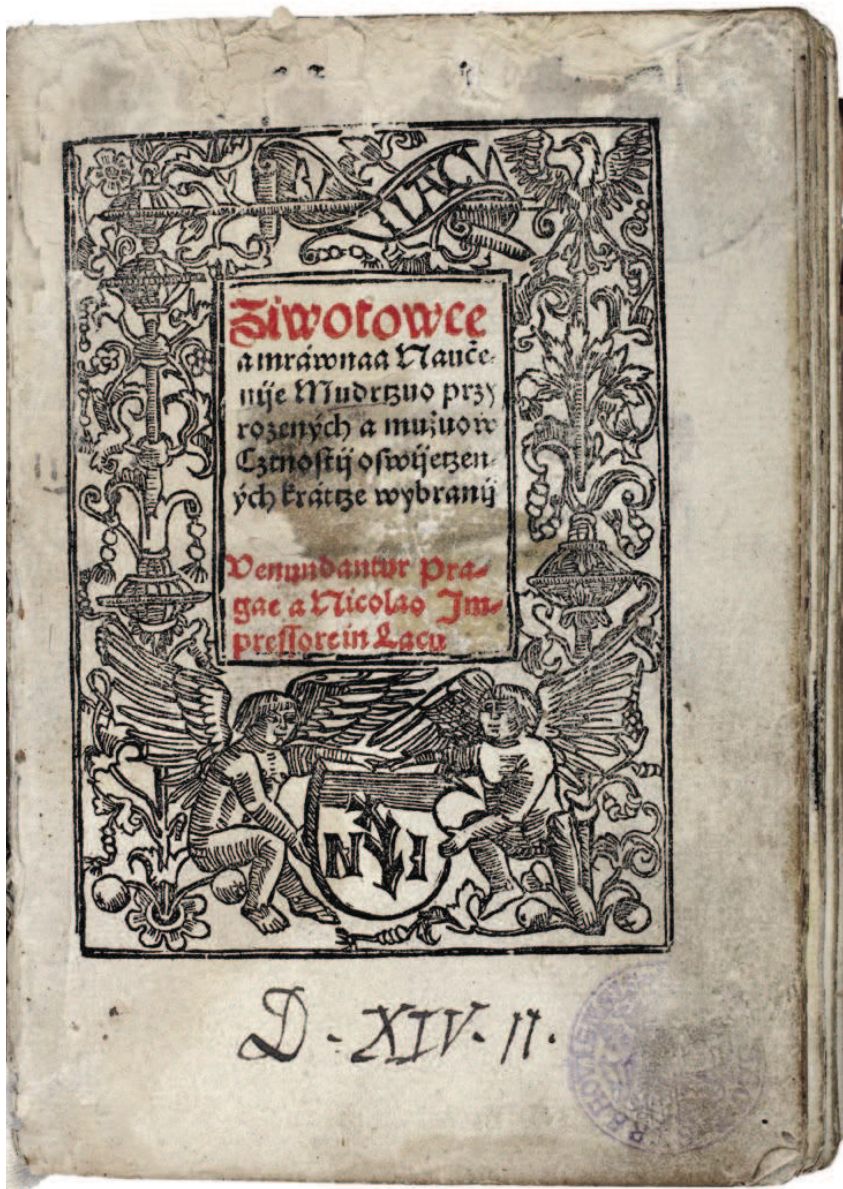 ILACV
Ziwotowce
a mráwnaa Nauče-
nije Mudrtzuo przy
rozených a mužuow
Cztnostij oswijetzen-
ých kráttze wybranij
Venundantur Pra-
gae a Nicolao Im-
pressore in Lacu
N I
D. XIV. 11.